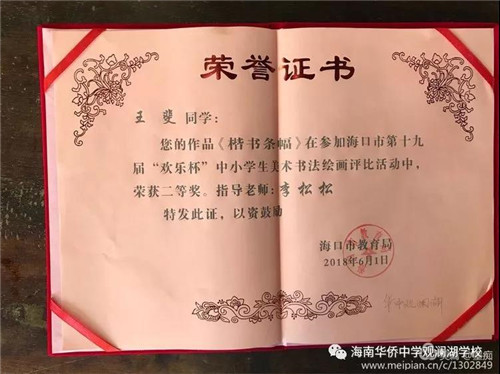 荣誉证书
王斐同学：
您的作品《楷书条幅》在参加海口市第十九
届“欢乐杯”中小学生美术书法绘画评比活动中，
荣获二等奖。指导老师：李松松
特发此证，以资鼓励
海口市教育局
2018年6月1日
海南华侨中学观澜湖学校
www.meipian.cn/c/1302849